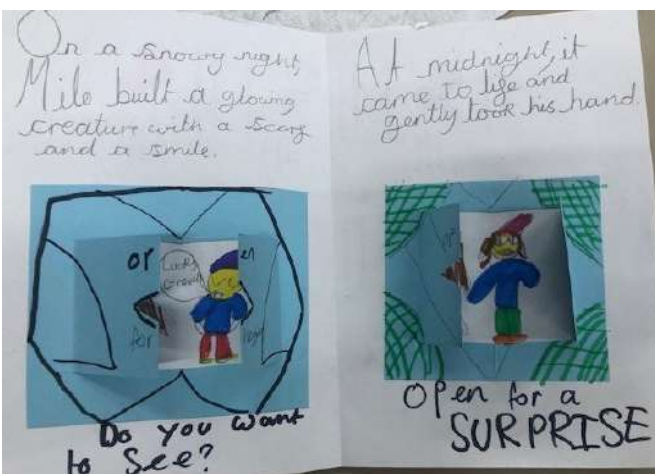 On a snowy night,
Milo built a glowing
creature with a scarf
and a smile.
op en
Looks
Great
for
Do you want
to See?
At midnight, it
came to life and
gently took his hand.
OPen for a
SURPRISE